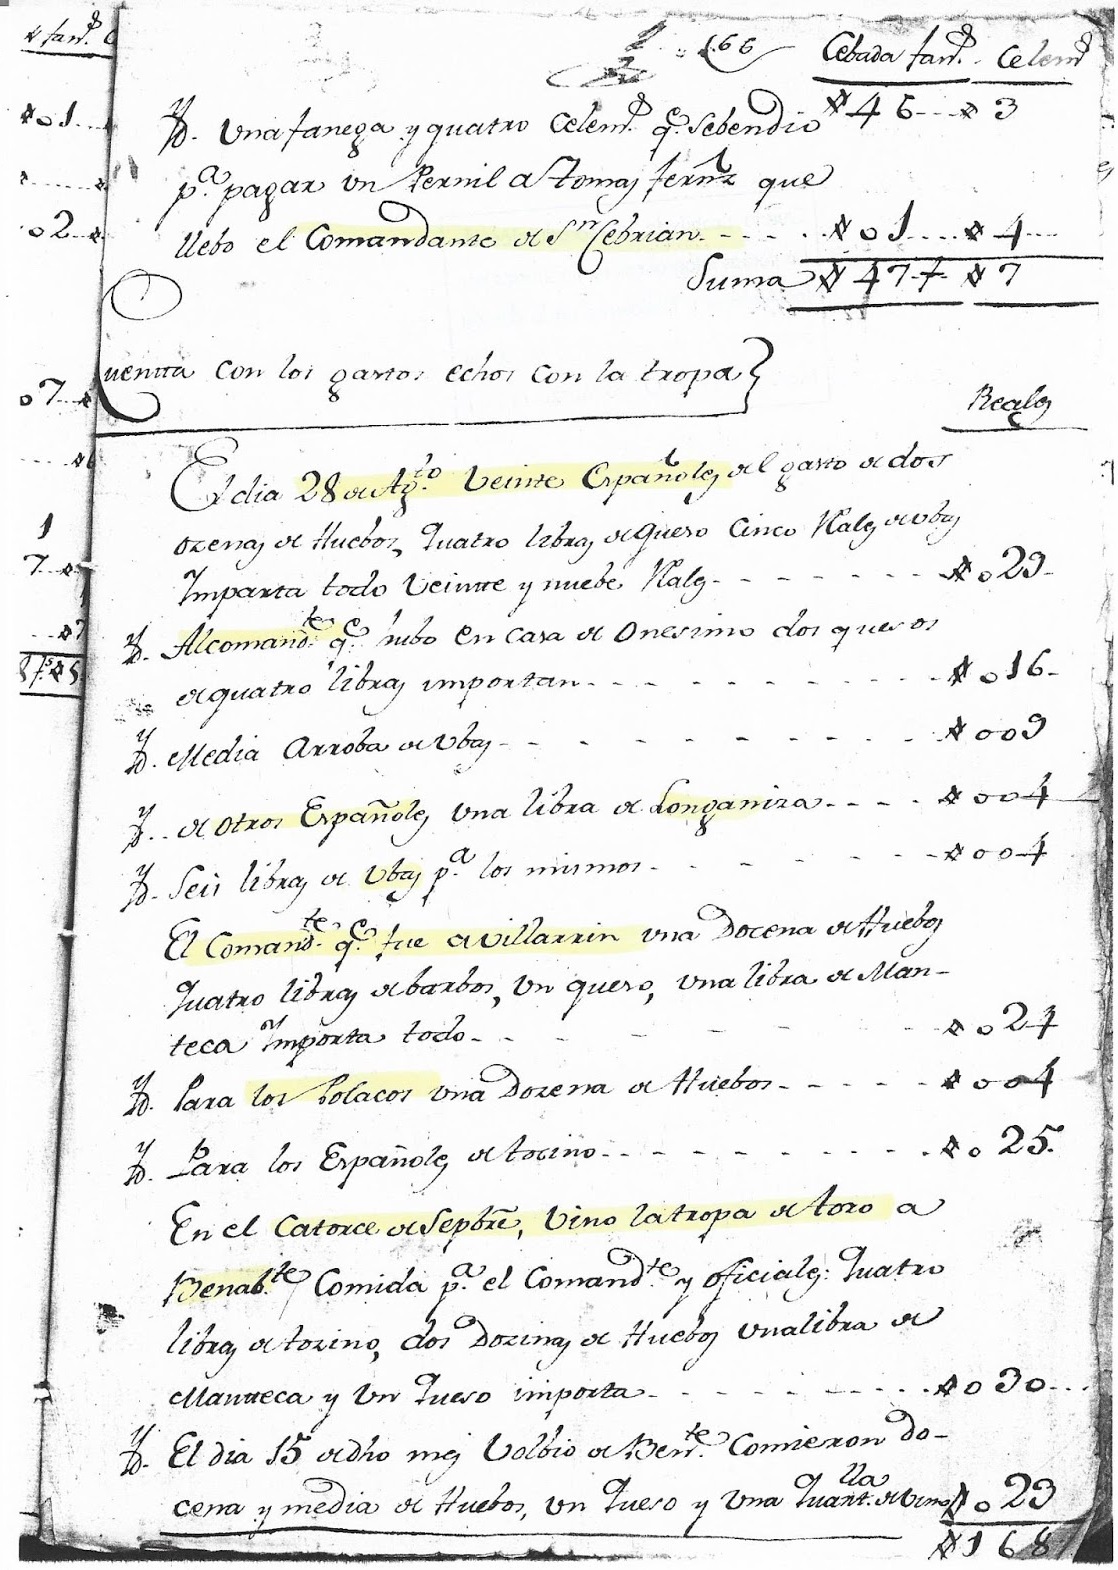 166 Cebada fan.s Celem.s
#46 # 3
Yd. Una fanega y quatro Celem.s q.e se bendio
p.a pagar un Pernil a Tomas fernz que
llebo el Comandante de S.n Cebrian #01 #4
Suma #47 f #7
Cuentta con los gastos echos con la tropa
Reales
El dia 28 de Ag.to Veinte Españoles del gasto de dos
ozenas de Huebos, quatro libras de queso Cinco Rales de ubas
Importa todo Veintte y nuebe Rales #029
Yd. Al comand.te q.e hubo en casa de Onesimo dos quesos
de quatro libras importan #016
Yd. Media Arroba de Ubas #009
Yd. de otros Españoles una libra de Longaniza #004
Yd. Seis libras de Ubas p.a los mismos #004
El Comand.te q.e fue a Villarrin una Docena de Huebos
quatro libras de barbos, un queso, una libra de Man-
teca Importa todo #024
Yd. Para los Polacos una Dozena de Huebos #004
Yd. Para los Españoles de tocino #025
En el Catorce de Sepbre, Vino la tropa de toro a
Benab.te Comida p.a el Comand.te y oficiales: quatro
libras de tozino, dos Dozinas de Huebos una libra de
Mantteca y un queso importa #030
Yd. El dia 15 de dho mes Volbio de Ben.te Comieron do-
cena y media de Huebos, un queso y una Quart.lla de vino #023
#168